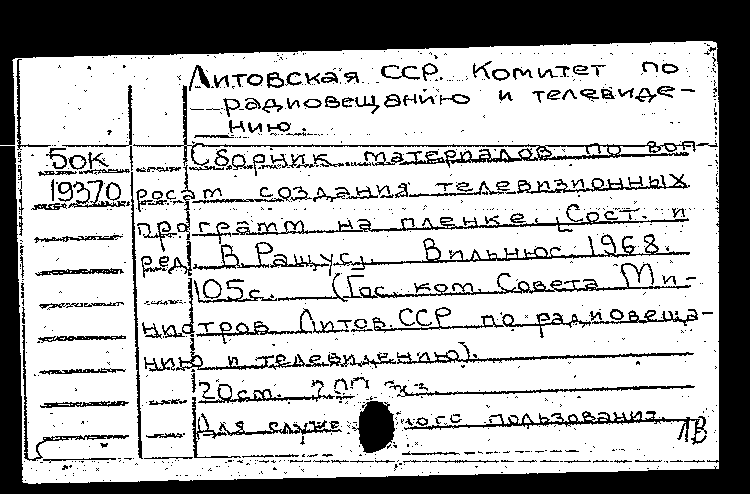 Литовская ССР. Комитет по
радиовещанию и телевиде-
нию.
50К Сборник материалов по воп-
19370 росам создания телевизионных
программ на пленке. [Сост. и
ред. В. Ращус]. Вильнюс. 1968.
105с. (Гос. ком. Совета Ми-
нистров Литов. ССР по радиовеща-
нию и телевидению).
20см. экз.
Для пользования.
1В